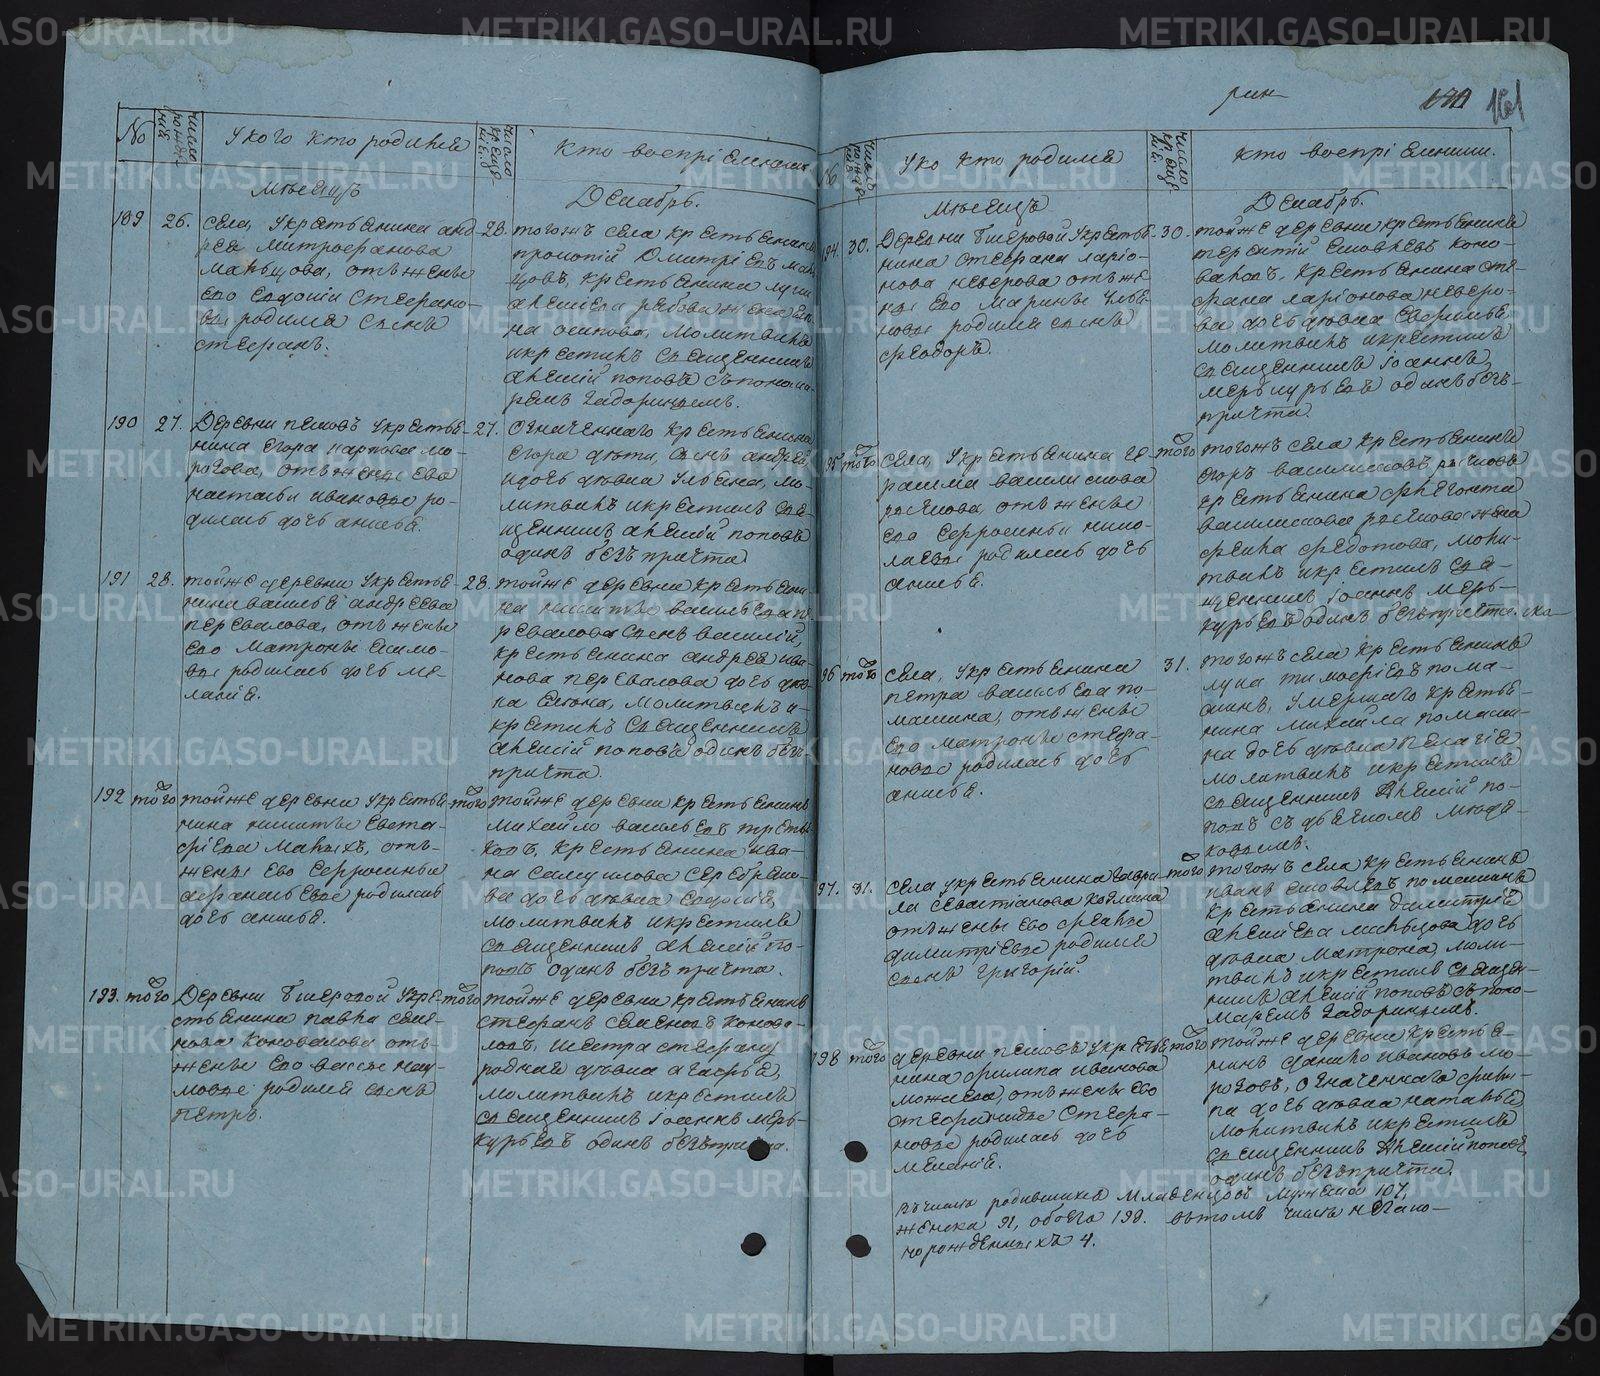 рин
161
No
число рожде ния
У кого кто родился
число креще ния
кто воспріемники
Мѣсяцъ
Декабрь.
189
26.
села, У крестьянина анд-
рея митрофанова
мальцова, отъ жены
Его Евдокіи Стефано-
вы родился сынъ
стефанъ.
28.
тогожъ села крестьянинъ
прокопій Дмитріевъ маль
цовъ, крестьянина луки
алексіева рябова жена
молитвилъ
и крестилъ священникъ
алексій поповъ съ понома-
ремъ
190
27.
Деревни У крестья-
нина Егора карпова мо-
розова, отъ жены Ево
настасьи ивановы ро-
дилась дочь анисья.
27.
означеннаго крестьянина
Егора дѣти, сынъ андрей,
и дочь дѣвица Ульяна, мо-
литвилъ и крестилъ свя-
щенникъ алексій поповъ
одинъ безъ причта
191
28.
тойже деревни У крестья-
нина василья андреева
перевалова, отъ жены
Ево матроны Екимо-
вы родилась дочь ме-
ланія.
28.
тойже деревни крестьяни-
на никиты васильева пе
ревалова сынъ василій,
крестьянина андрея ива-
нова перевалова дочь дѣви-
ца молитвилъ и
крестилъ священникъ
алексій поповъ одинъ безъ
причта.
192
того
тойже деревни У крестья-
нина никиты Евста-
фіева малыхъ, отъ
жены Ево Ефросиньи
афанасьевы родилась
дочь анисья.
того
тойже деревни крестьянинъ
михайло васильевъ третья
ковъ, крестьянина ива-
на самуилова серебрени-
ва дочь дѣвица Евдокія,
молитвилъ и крестилъ
священникъ алексій по-
повъ одинъ безъ причта.
193.
того
Деревни У кре-
стьянина павла семе-
нова коновалова отъ
жены Его вассы нау-
мовы родился сынъ
петръ.
того
тойже деревни крестьянинъ
стефанъ семеновъ конова-
ловъ, и сестра стефану
родная дѣвица агафья,
молитвилъ и крестилъ
священникъ іоаннъ мерь-
курьевъ одинъ безъ причта.
число рожде ния
У ко кто родился
число креще ния
кто воспріемники.
Мѣсяцъ
Декабрь.
194.
30.
Деревни У крестья-
нина стефана ларіо-
нова неверова отъ же
ны Ево Марины
новы родился сынъ
феодоръ.
30.
тойже деревни крестьянинъ
терентій коно-
валовъ, крестьянина сте-
фана ларіонова неверо-
ва дочь дѣвица
молитвилъ и крестилъ
священникъ іоаннъ
мерькурьевъ одинъ безъ-
причта.
195
того
Села, У крестьянина ге-
расима василискова
отъ жены
Ево Ефросиньи нико-
лаевы родилась дочь
анисья.
того
тогожъ села крестьянинъ
егоръ василисковъ
крестьянина
василискова жена
фекла федотова, моли-
твилъ и крестилъ свя-
щенникъ іоаннъ мерь-
курьевъ одинъ безъ причта.
196
того
Села, У крестьянина
петра васильева по-
машина, отъ жены
Ево матроны стефа-
новы родилась дочь
анисья.
31.
тогожъ села крестьянинъ
лука тимофіевъ пома-
шинъ, умершаго крестья-
нина михайла помаши-
на дочь дѣвица пелагія
молитвилъ и крестилъ
священникъ Алексій по-
повъ съ дьячкомъ
197.
31.
Села У крестьянина гаври-
ла севастіанова
отъ жены Ево феклы
димитріевы родился
сынъ григорій.
того
тогожъ села крестьянинъ
иванъ помашинъ
крестьянина димитрія
алексіева мальцова дочь
дѣвица матрона, моли-
твилъ и крестилъ священ-
никъ алексій поповъ съ поно-
маремъ
198
того
деревни У крестья
нина филипа иванова
отъ жены Ево
стефа-
новы родилась дочь
меланія.
того
тойже деревни крестья-
нинъ данило ивановъ мо-
розовъ, означеннаго фили-
па дочь дѣвица наталья
молитвилъ и крестилъ
священникъ Алексій поповъ
одинъ безъ причта.
въ числѣ родившихся младенцовъ мужеска 107,
женска 91, обоего 198. въ томъ числѣ незако-
норожденныхъ 4.
METRIKI.GASO-URAL.RU